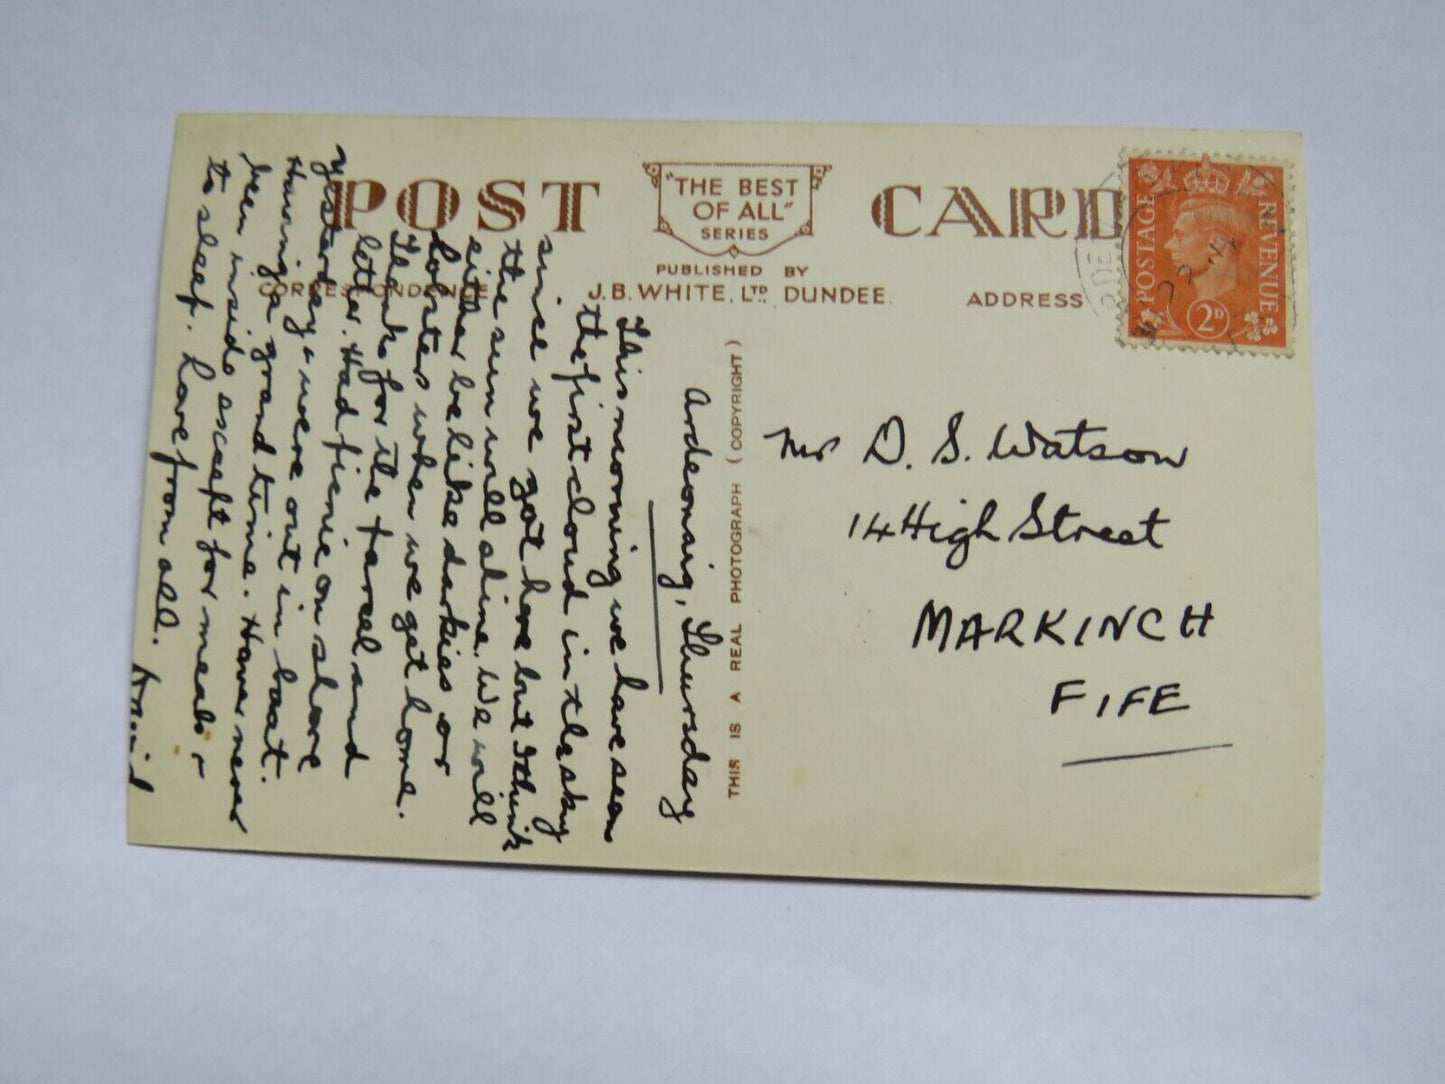 POST CARD
"THE BEST
OF ALL"
SERIES
PUBLISHED BY
CORRESPONDENCE
J.B. WHITE, LTD. DUNDEE.
ADDRESS
POSTAGE
REVENUE
2D
THIS IS A REAL PHOTOGRAPH (COPYRIGHT)
Mr D. S. Watson
14 High Street
MARKINCH
FIFE
Ardeonaig, Thursday
This morning we have seen
the first cloud in the sky
since we got here but I think
the sun will shine. We will
either be like darkies or
lobsters when we get home.
Thanks for the parcel and
letter. Had picnic on shore
yesterday & were out in boat.
Having a grand time. Have never
been inside except for meals &
to sleep. Love from all.